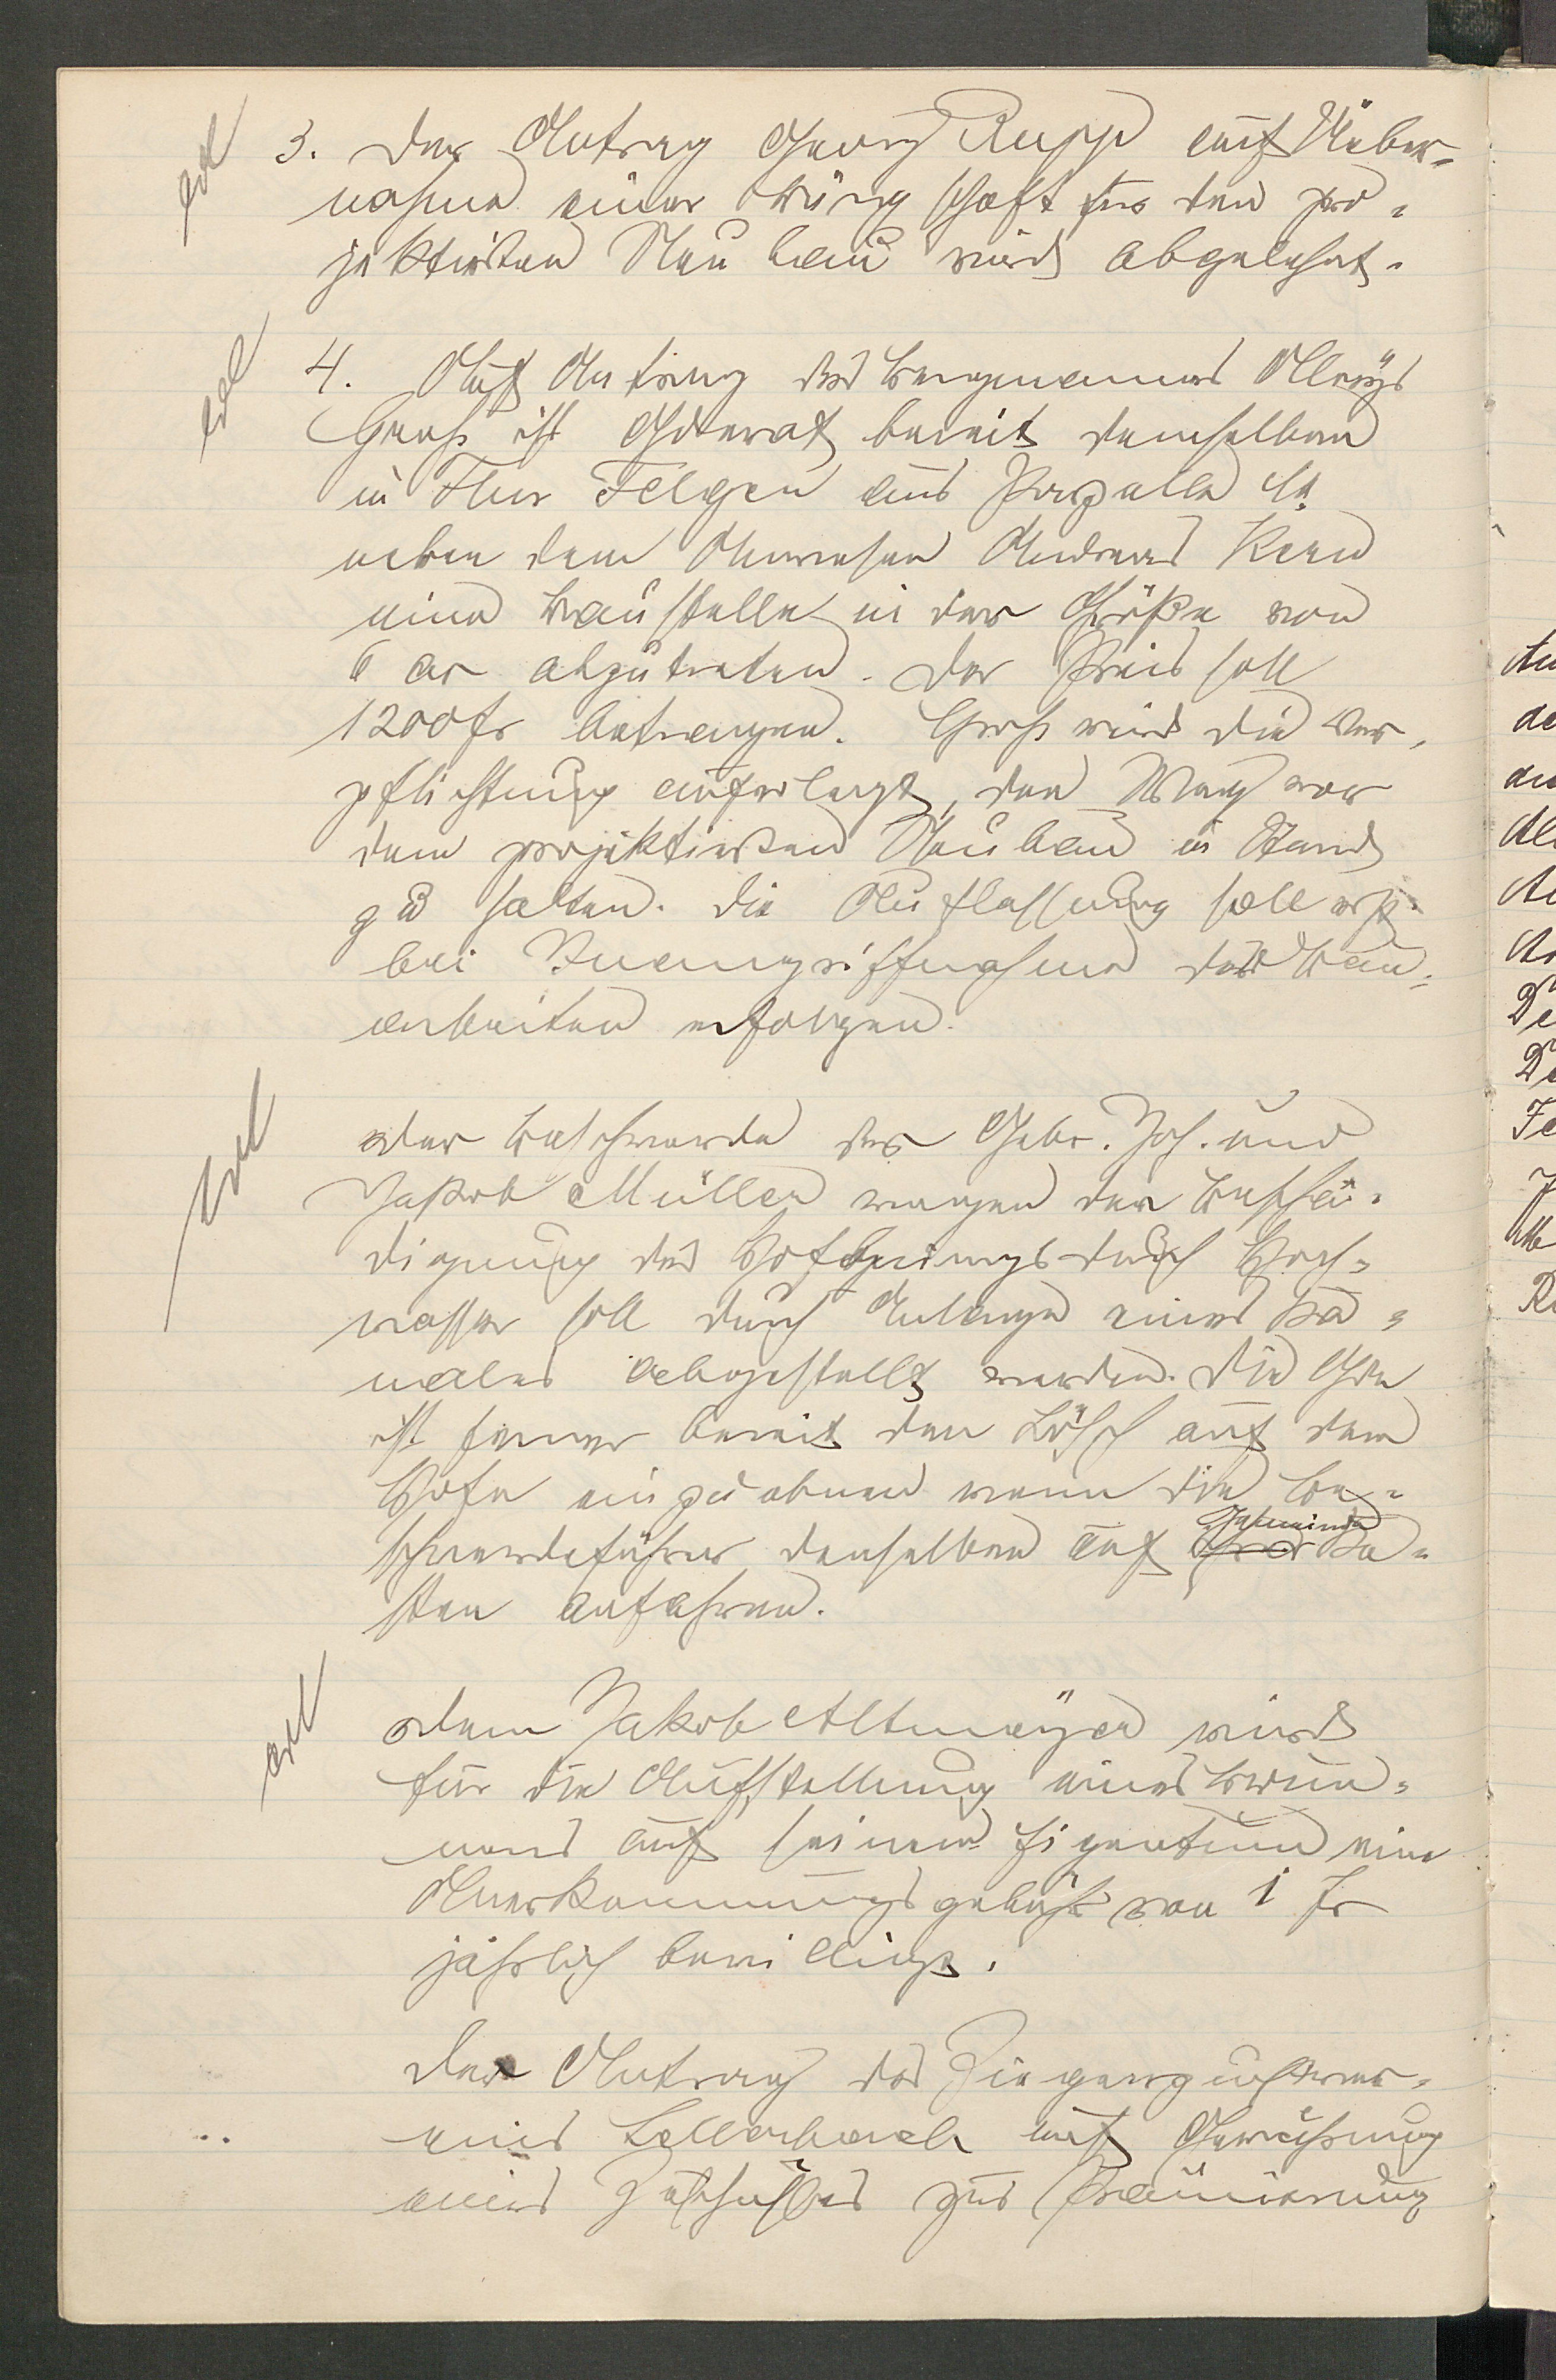 erl
3. Der Antrag Georg Rupp auf Ueber-
nahme einer Bürgschaft für den pro-
jektierten Neubau wird abgelehnt.
erl
4. Auf Antrag des Bergmannes Aloys
Groß ist Gderat bereit demselben
in Flur Felgen aus Parzelle
neben dem Anwesen Andreas
eine Baustelle in der Größe von
6 ar abzutreten. Der Preis soll
1200 fr betragen. Groß wird die Ver-
pflichtung auferlegt, den Weg vor
dem projektierten Neubau in Stand
zu halten. Die Auflassung soll erst
bei Inangriffnahme der Bau-
arbeiten erfolgen.
Erl
Der Beschwerde der Gebr. Joh. und
Jakob Müller wegen der Beschä-
digung des Hofberings durch Hoch-
wasser soll durch Anlage eines Ka-
nales abgestellt werden. Die Gde
ist ferner bereit den Lösch auf dem
Hofe einzuebnen wenn die Be-
schwerdeführer denselben auf Gemeinde Ko-
sten anfahren.
erl
Dem Jakob Altmeÿer wird
für die Aufstellung eines Brun-
nens auf seinem Eigentum eine
Anerkennungsgebühr von 1 Fr
jährlich bewilligt.
Der Antrag des Ziegenzuchtver-
eins Kellerbach auf Gewährung
eines Zuschußes zur Prämierung